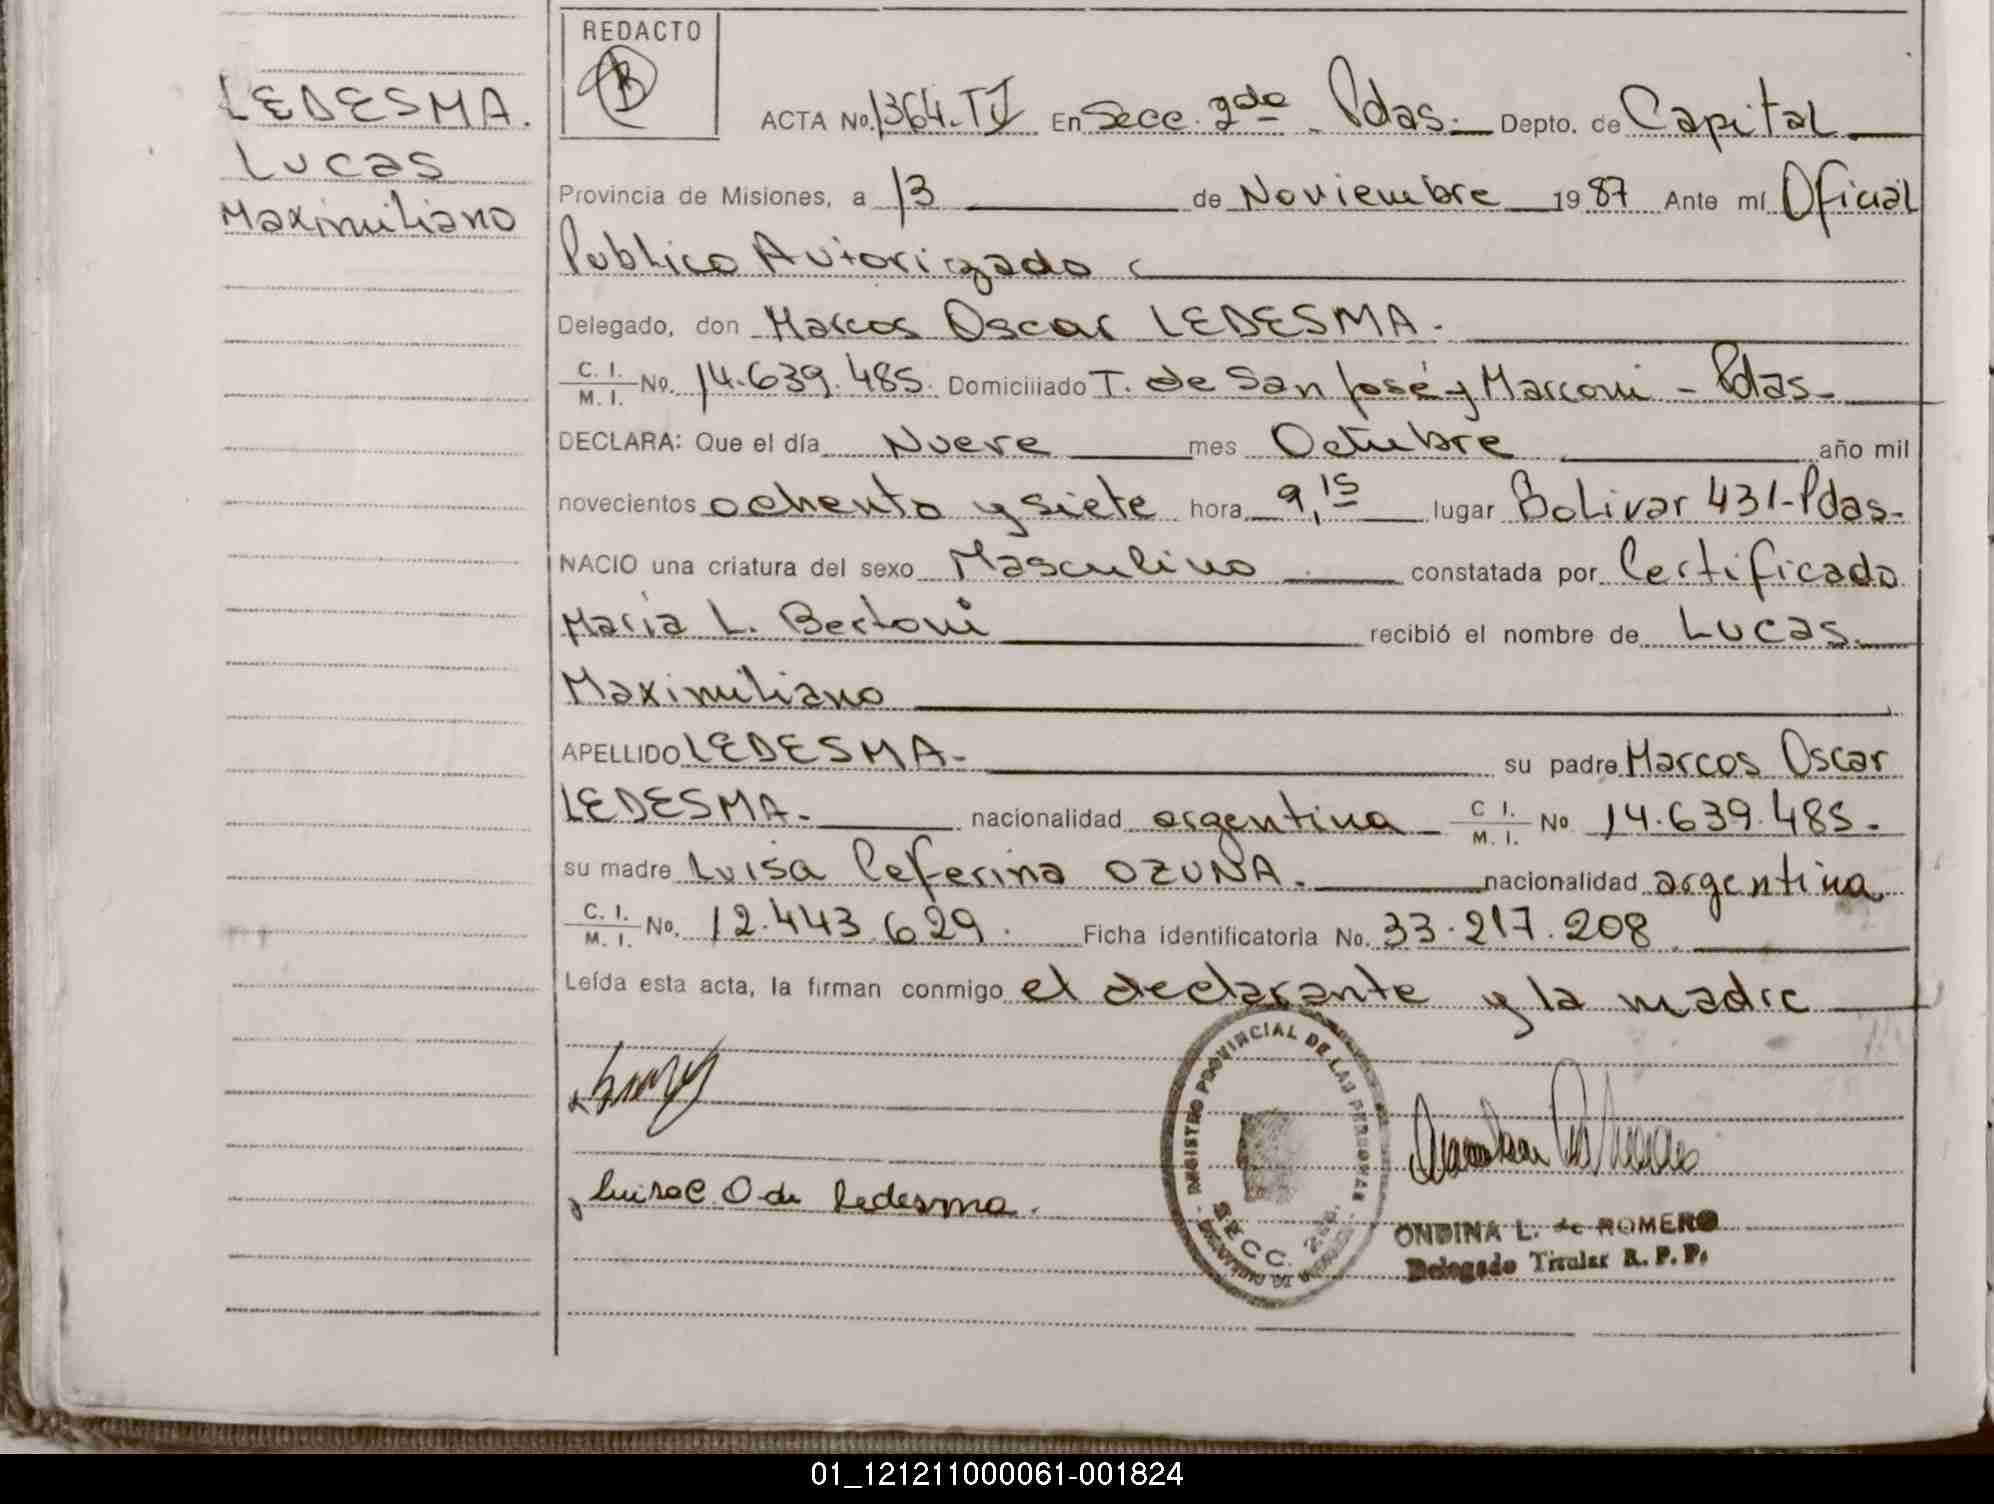 LEDESMA.
Lucas
Maximiliano
REDACTO
B
ACTA No. 1364-TV En Secc. 2do Pdas. Depto. de Capital
Provincia de Misiones, a 13 de Noviembre 1987 Ante mí Oficial
Publico Autorizado
Delegado, don Marcos Oscar LEDESMA.
C. I. / M. I. No. 14.639.485. Domiciliado T. de San José y Marconi - Pdas
DECLARA: Que el día Nueve mes Octubre año mil
novecientos ochenta y siete hora 9,15 lugar Bolivar 431-Pdas.
NACIO una criatura del sexo Masculino constatada por Certificado
Maria L. Bertoni recibió el nombre de Lucas
Maximiliano
APELLIDO LEDESMA- su padre Marcos Oscar
LEDESMA. nacionalidad argentina C I. / M. I. No 14.639.485.
su madre Luisa Ceferina OZUNA. nacionalidad argentina
C. I. / M. I. No. 12.443.629. Ficha identificatoria No. 33.217.208
Leída esta acta, la firman conmigo el declarante y la madre
Luisa C. O de Ledesma.
REGISTRO PROVINCIAL DE LAS PERSONAS
SECC. 2da.
ONDINA L. de ROMERO
Delegado Titular R. P. P.
01_121211000061-001824